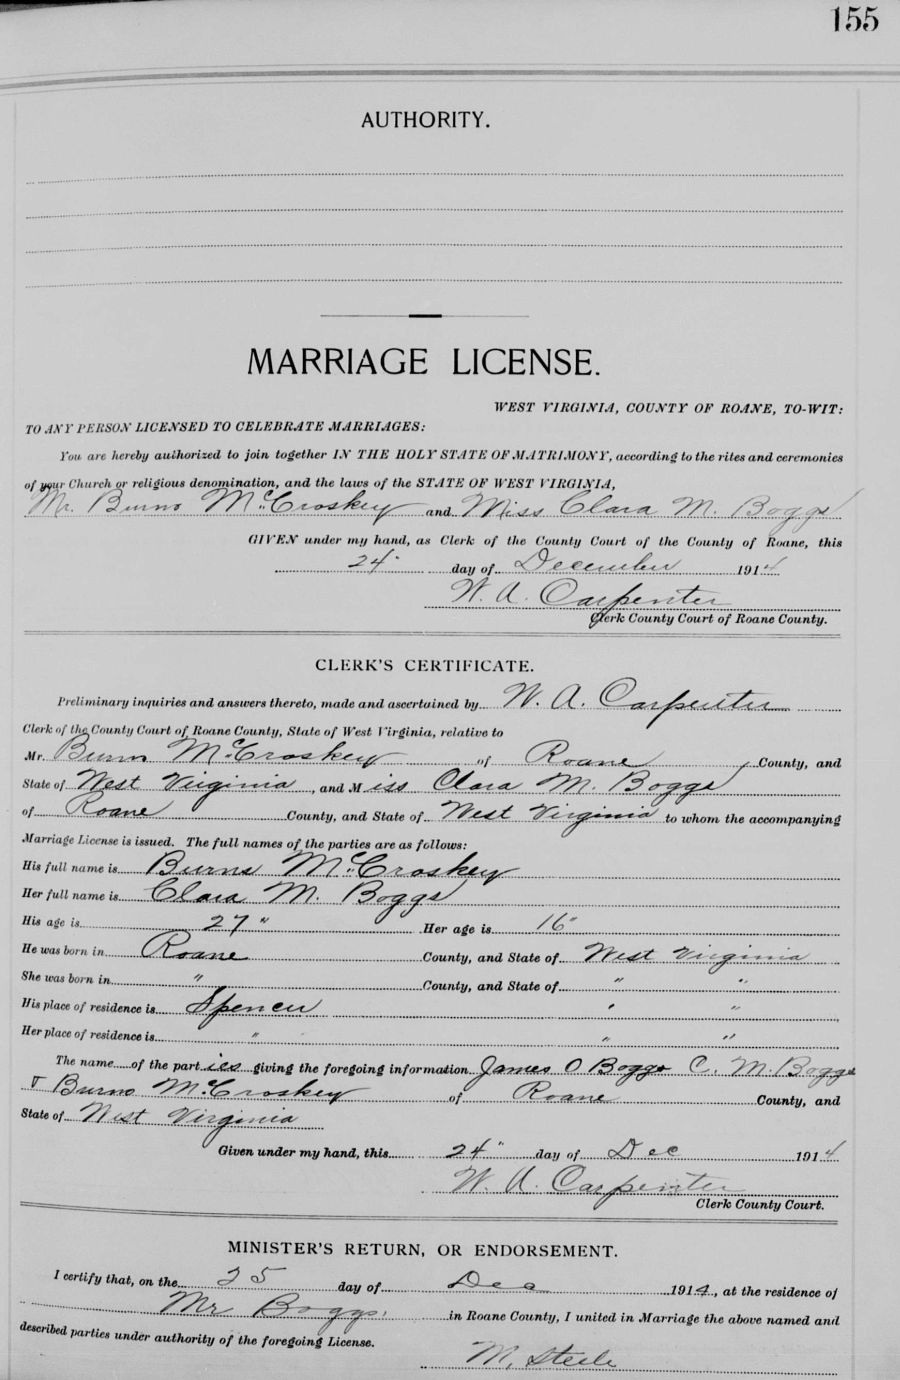 155
AUTHORITY.
MARRIAGE LICENSE.
WEST VIRGINIA, COUNTY OF ROANE, TO-WIT:
TO ANY PERSON LICENSED TO CELEBRATE MARRIAGES:
You are hereby authorized to join together IN THE HOLY STATE OF MATRIMONY, according to the rites and ceremonies
of your Church or religious denomination, and the laws of the STATE OF WEST VIRGINIA,
Mr. Burns McCroskey and Miss Clara M. Boggs
GIVEN under my hand, as Clerk of the County Court of the County of Roane, this
24" day of December 1914
W. A. Carpenter
Clerk County Court of Roane County.
CLERK'S CERTIFICATE.
Preliminary inquiries and answers thereto, made and ascertained by W. A. Carpenter
Clerk of the County Court of Roane County, State of West Virginia, relative to
Mr. Burns McCroskey of Roane County, and
State of West Virginia, and Miss Clara M. Boggs
of Roane County, and State of West Virginia to whom the accompanying
Marriage License is issued. The full names of the parties are as follows:
His full name is Burns McCroskey
Her full name is Clara M. Boggs
His age is 27" Her age is 16"
He was born in Roane County, and State of West Virginia
She was born in " County, and State of " "
His place of residence is Spencer " "
Her place of residence is " " "
The name of the parties giving the foregoing information James O Boggs C. M. Boggs
& Burns McCroskey of Roane County, and
State of West Virginia
Given under my hand, this 24" day of Dec 1914
W. A. Carpenter
Clerk County Court.
MINISTER'S RETURN, OR ENDORSEMENT.
I certify that, on the 25 day of Dec 1914, at the residence of
Mr Boggs. in Roane County, I united in Marriage the above named and
described parties under authority of the foregoing License.
M. Steele